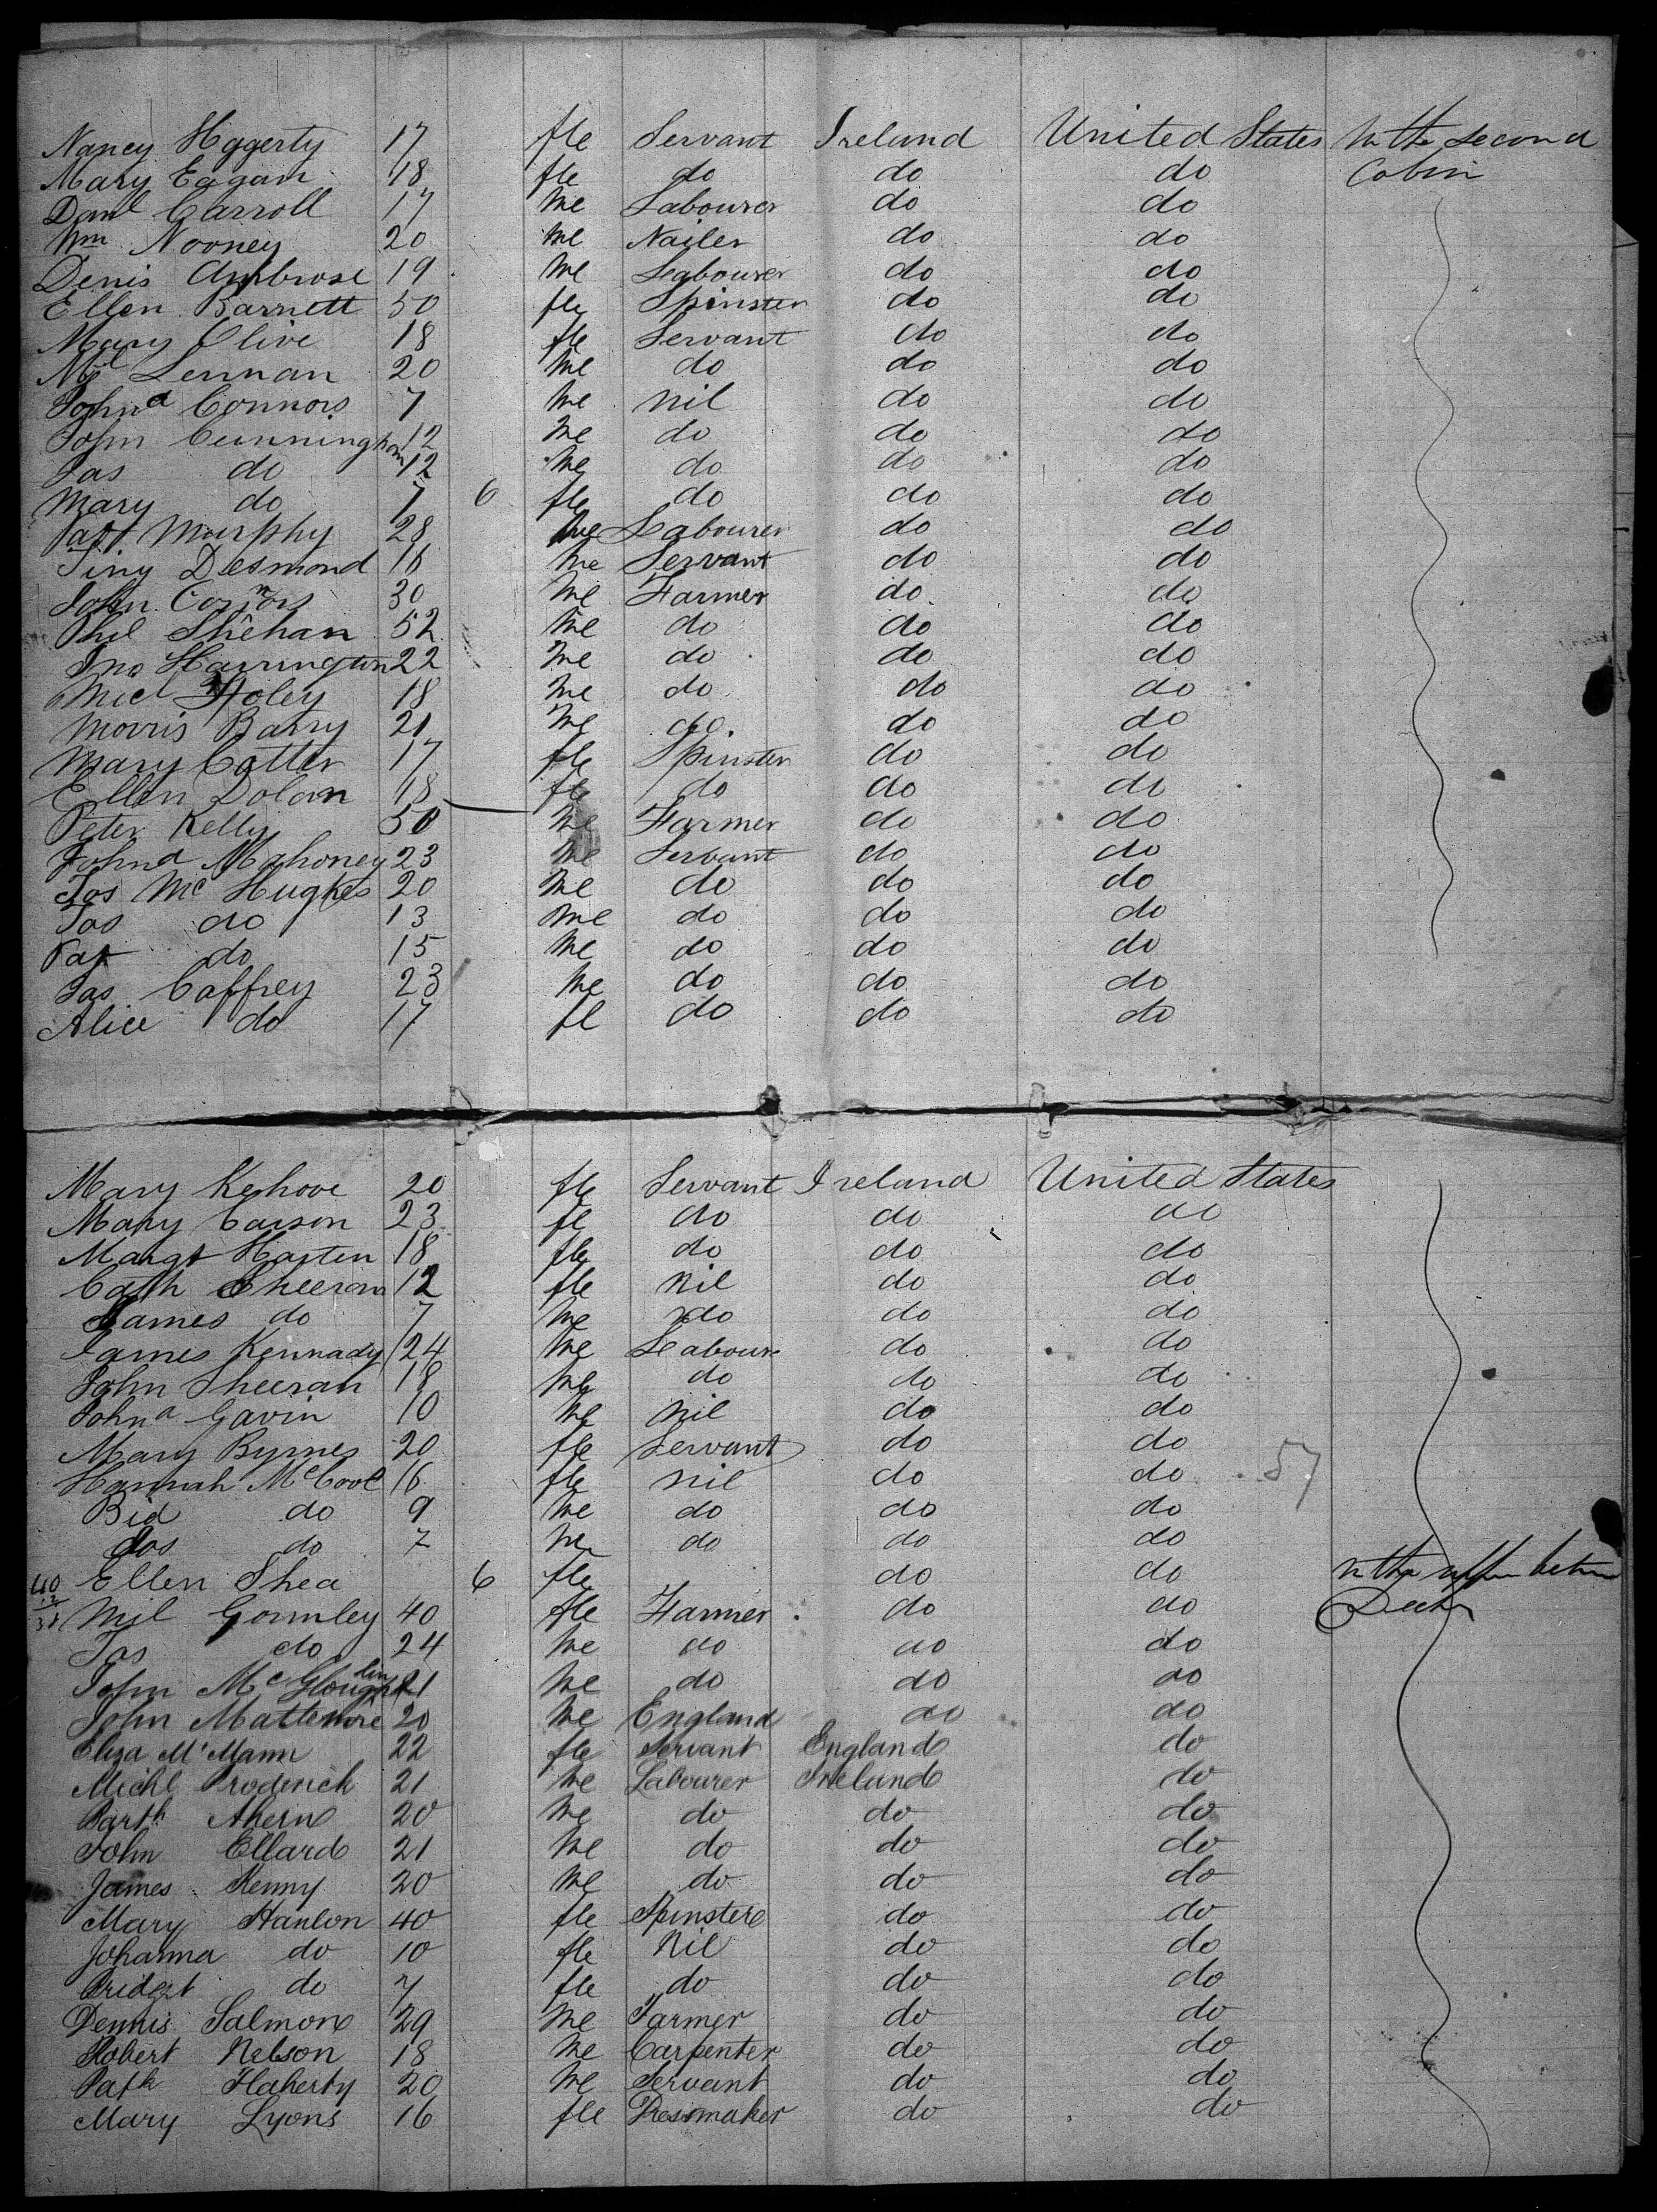 Nancy Hggerty 17 fle Servant Ireland United States In the second
Mary Eagan 18 fle do do do Cabin
Danl Carroll 17 me Labourer do do
Wm Nooney 20 me Nailer do do
Denis Ambrose 19 me Labourer do do
Ellen Barnett 50 fle Spinster do do
Mary Clive 18 fle Servant do do
Ml Lennan 20 me do do do
Johna Connors 7 me nil do do
John Cunningham 12 me do do do
Jas do 12 me do do do
Mary do 7 6 fle do do do
Patt Murphy 28 me Labourer do do
Tiny Desmond 16 me Servant do do
John Connors 30 me Farmer do do
Phil Shehan 52 me do do do
Jno Harrington 22 me do do do
Micl Holey 18 me do do do
Morris Barry 21 me do do do
Mary Cotter 17 fle Spinster do do
Ellen Dolan 18 fle do do do
Peter Kelly 50 me Farmer do do
Johna Mahoney 23 me Servant do do
Jos Mc Hughes 20 me do do do
Jas do 13 me do do do
Pat do 15 me do do do
Jas Caffrey 23 me do do do
Alice do 17 fl do do do
Mary Kehove 20 fle Servant Ireland United States
Mary Carson 23 fl do do do
Margt Hasten 18 fle do do do
Cath Sheeran 12 fle nil do do
James do 7 me do do do
James Kennady 24 me Labour do do
John Sheeran 18 me do do do
Johna Gavin 10 me nil do do
Mary Byrnes 20 fle Servant do do
Hannah McCool 16 fle nil do do 57
Bid do 9 me do do do
Jos do 7 me do do do
40 Ellen Shea 6 fle do do In the between
Mil Gormley 40 fle Farmer do do Decks
Jas do 24 me do do do
John McGloughlin 21 me do do do
John Mattemore 20 me England do do
Eliza McMann 22 fle Servant England do
Michl Broderick 21 me Labourer Ireland do
Barth Ahern 20 me do do do
John Ellard 21 me do do do
James Kenny 20 me do do do
Mary Hanlon 40 fle Spinster do do
Johanna do 10 fle Nil do do
Bridget do 7 fle do do do
Dennis Salmon 29 me Farmer do do
Robert Nelson 18 me Carpenter do do
Patk Flaherty 20 me Servant do do
Mary Lyons 16 fle Dressmaker do do